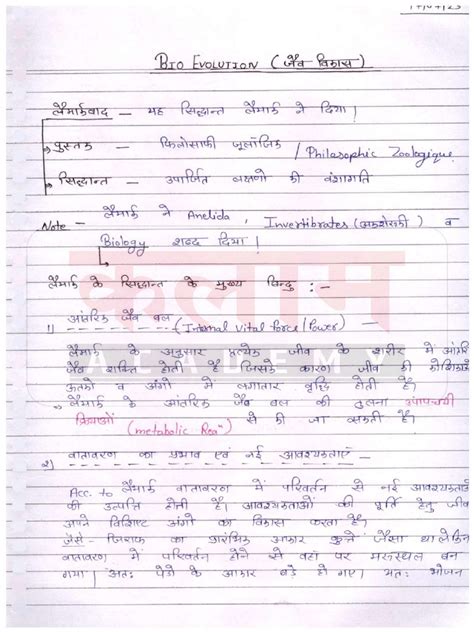 17/07/23
BIO EVOLUTION (जैव विकास)
लैमार्कवाद — यह सिद्धान्त लैमार्क ने दिया।
पुस्तक — फिलोसाफी जूलॉजिक / Philosophic Zoologique
सिद्धान्त — उपार्जित लक्षणों की वंशागति
Note - लैमार्क ने Anelida, Invertibrates (अकशेरूकी) व
Biology शब्द दिया।
लैमार्क के सिद्धान्त के मुख्य बिन्दु :-
कलाम
ACADEMY
1) आंतरिक जैव बल (Internal Vital force/Power)
लैमार्क के अनुसार प्रत्येक जीव के शरीर में आंतरिक
जैव शक्ति होती है जिसके कारण जीव की कोशिकाओं
ऊतको व अंगों में लगातार वृद्धि होती है।
लैमार्क के आंतरिक जैव बल की तुलना उपापचयी
क्रियाओं (metabolic Rea") से की जा सकती है।
2) वातावरण का प्रभाव एवं नई आवश्यकताएं -
Acc. to लैमार्क वातावरण में परिवर्तन से नई आवश्यकताओं
की उत्पत्ति होती है। आवश्यकताओं की पूर्ति हेतु जीव
अपने विशिष्ट अंगों का विकास करता है।
जैसे - जिराफ का प्रारंभिक आकार कुत्ते जैसा था लेकिन
वातावरण में परिवर्तन होने से वहां पर मरूस्थल बन
गया। अतः पेडो के आकार बडे हो गए। अतः भोजन